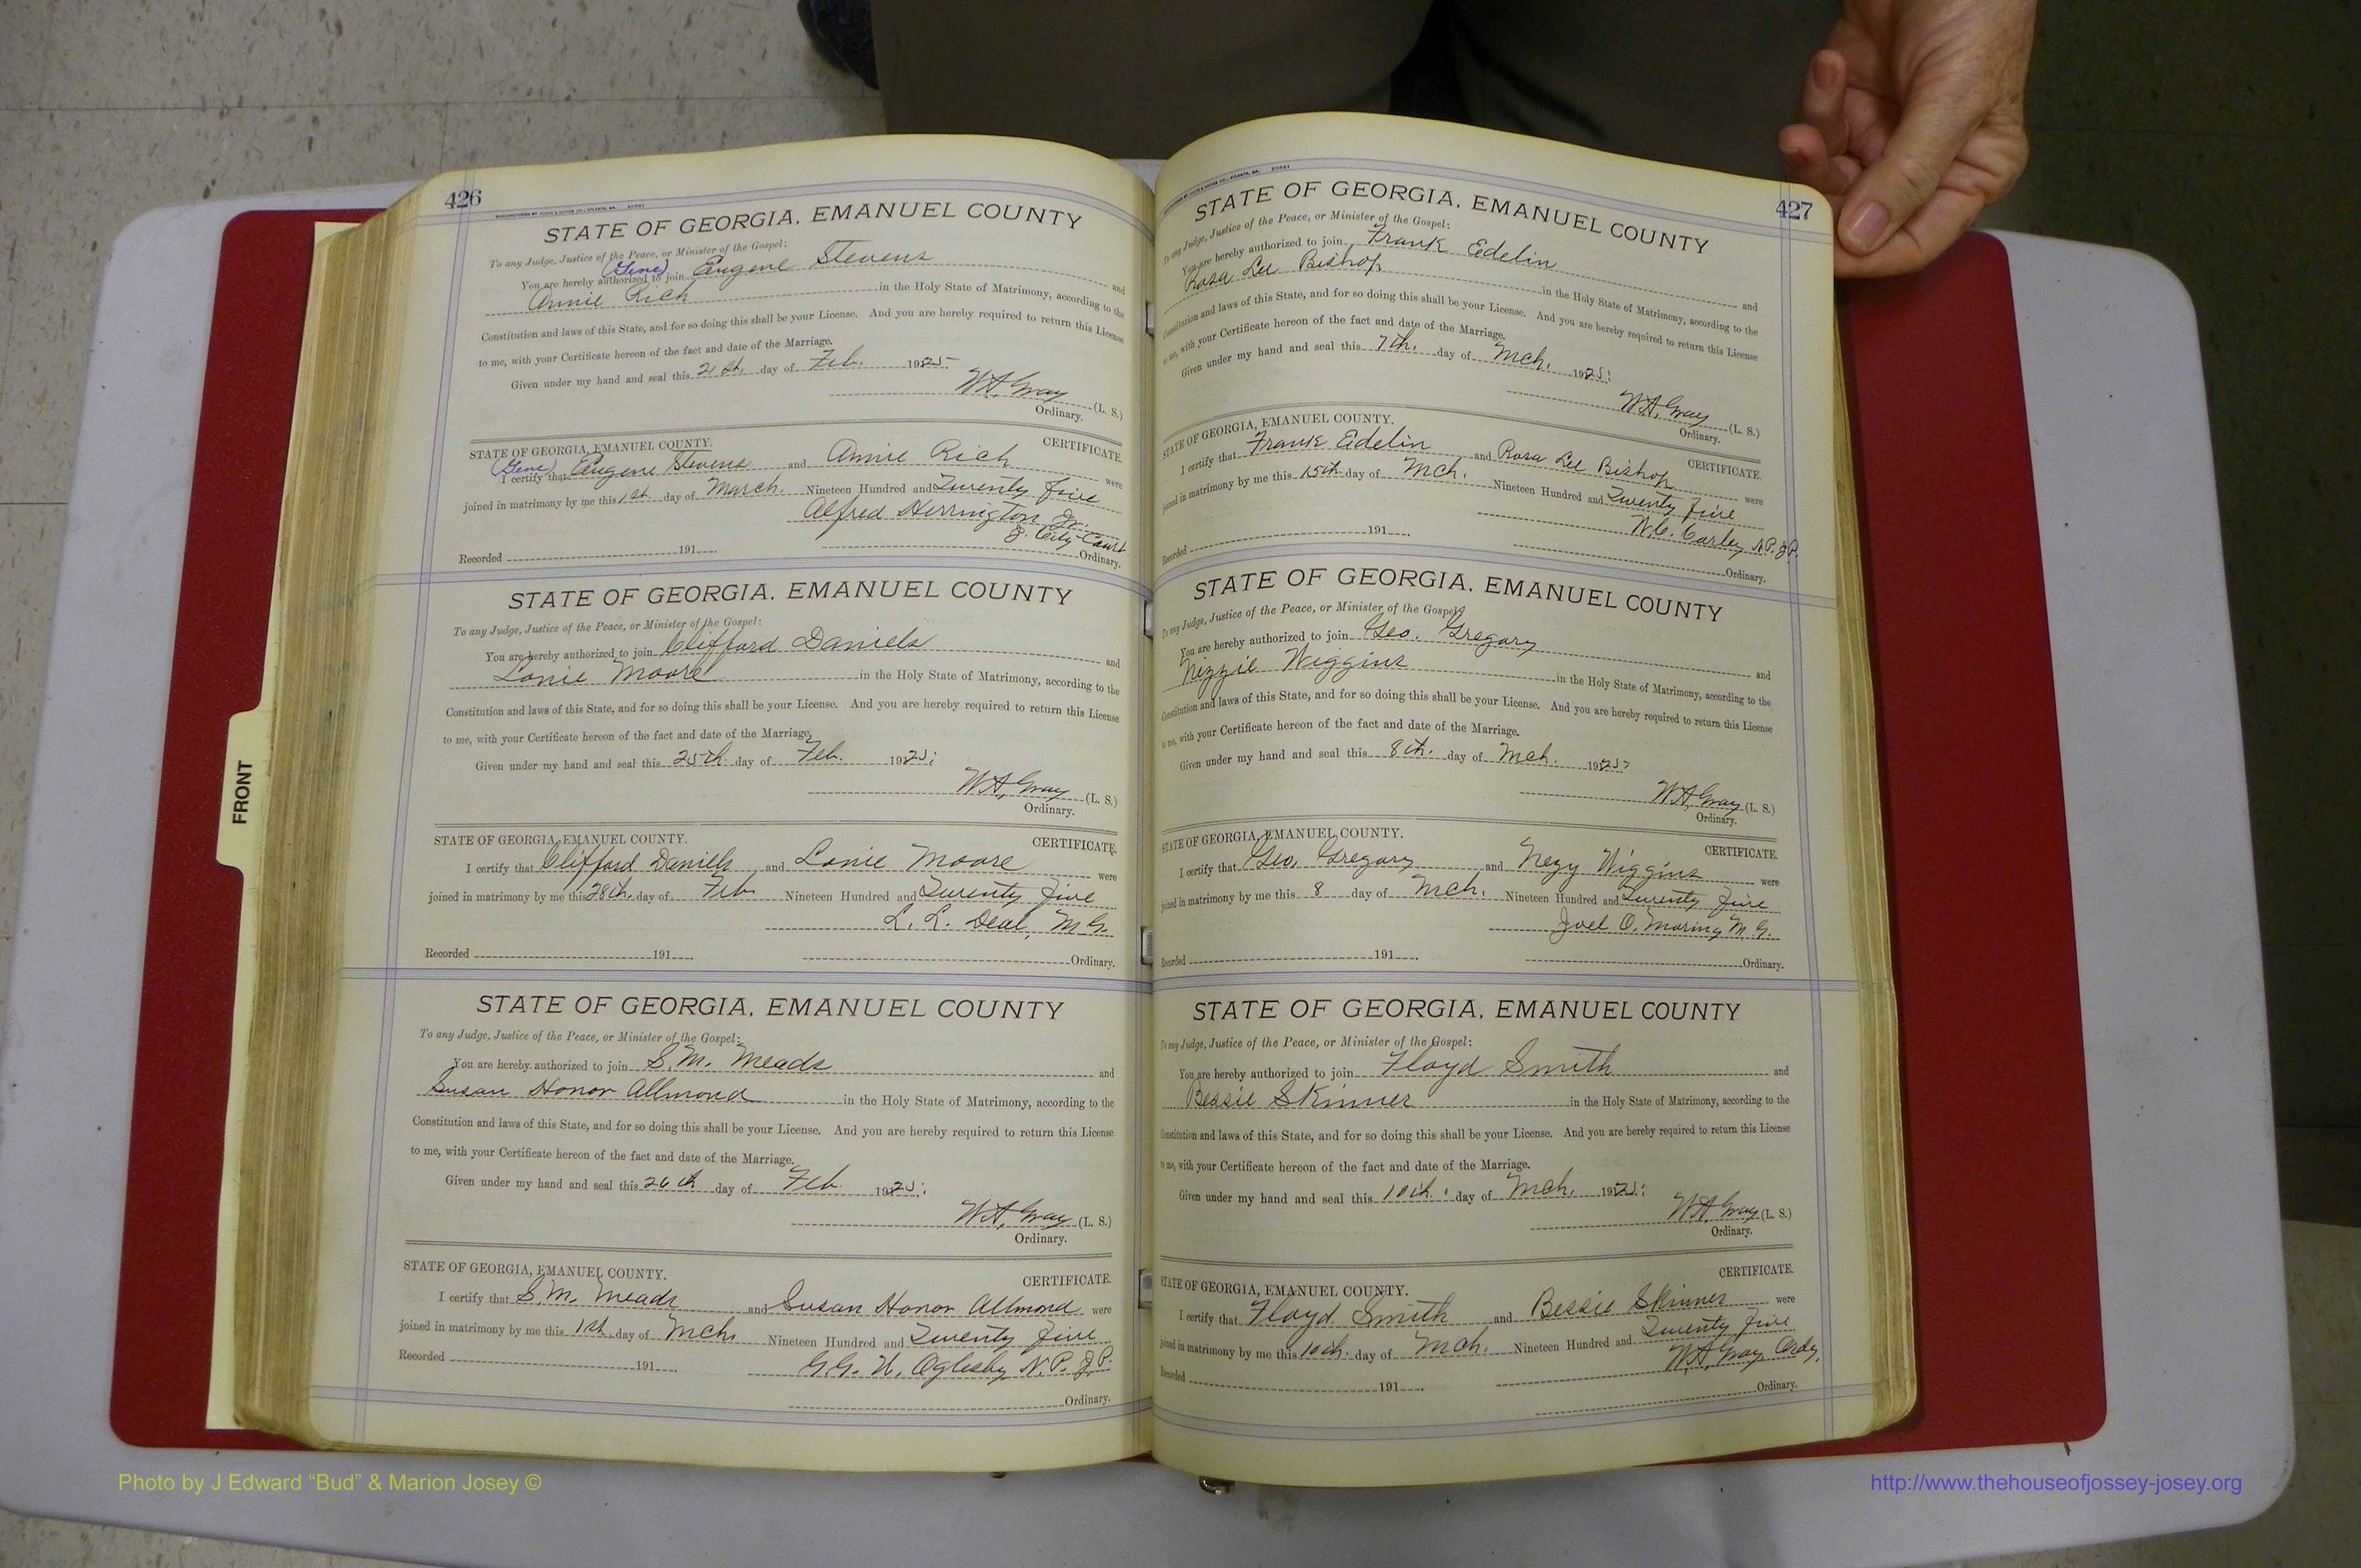 426
STATE OF GEORGIA, EMANUEL COUNTY
To any Judge, Justice of the Peace, or Minister of the Gospel:
(Gene)
You are hereby authorized to join Eugene Stevens and
Annie Rich in the Holy State of Matrimony, according to the
Constitution and laws of this State, and for so doing this shall be your License. And you are hereby required to return this License
to me, with your Certificate hereon of the fact and date of the Marriage.
Given under my hand and seal this 21st. day of Feb. 1925
W.A. Gray (L. S.)
Ordinary.
STATE OF GEORGIA, EMANUEL COUNTY. CERTIFICATE.
(Gene)
I certify that Eugene Stevens and Annie Rich were
joined in matrimony by me this 1st. day of March. Nineteen Hundred and Twenty five
Alfred Herrington Jr.
J. City Court
Recorded 191 Ordinary.
STATE OF GEORGIA, EMANUEL COUNTY
To any Judge, Justice of the Peace, or Minister of the Gospel:
You are hereby authorized to join Clifford Daniels and
Lonie Moore in the Holy State of Matrimony, according to the
Constitution and laws of this State, and for so doing this shall be your License. And you are hereby required to return this License
to me, with your Certificate hereon of the fact and date of the Marriage.
Given under my hand and seal this 25th. day of Feb. 1925
W.A. Gray (L. S.)
Ordinary.
STATE OF GEORGIA, EMANUEL COUNTY. CERTIFICATE.
I certify that Clifford Daniels and Lonie Moore were
joined in matrimony by me this 28th. day of Feb Nineteen Hundred and Twenty five
L. L. Deal, M.G.
Recorded 191 Ordinary.
STATE OF GEORGIA, EMANUEL COUNTY
To any Judge, Justice of the Peace, or Minister of the Gospel:
You are hereby authorized to join S.M. Meads and
Susan Honor Allmond in the Holy State of Matrimony, according to the
Constitution and laws of this State, and for so doing this shall be your License. And you are hereby required to return this License
to me, with your Certificate hereon of the fact and date of the Marriage.
Given under my hand and seal this 26th day of Feb. 1925
W.A. Gray (L. S.)
Ordinary.
STATE OF GEORGIA, EMANUEL COUNTY. CERTIFICATE.
I certify that S.M. Meads and Susan Honor Allmond were
joined in matrimony by me this 1st. day of Mch. Nineteen Hundred and Twenty five
Oglesby N.P. J.P.
Recorded 191
Ordinary.
427
STATE OF GEORGIA, EMANUEL COUNTY
To any Judge, Justice of the Peace, or Minister of the Gospel:
You are hereby authorized to join Frank Edelin and
Rosa Lee Bishop in the Holy State of Matrimony, according to the
Constitution and laws of this State, and for so doing this shall be your License. And you are hereby required to return this License
to me, with your Certificate hereon of the fact and date of the Marriage.
Given under my hand and seal this 7th. day of Mch. 1925
W.A. Gray (L. S.)
Ordinary.
STATE OF GEORGIA, EMANUEL COUNTY. CERTIFICATE.
I certify that Frank Edelin and Rosa Lee Bishop were
joined in matrimony by me this 15th day of Mch. Nineteen Hundred and Twenty five
N.P. J.P.
Recorded 191 Ordinary.
STATE OF GEORGIA, EMANUEL COUNTY
To any Judge, Justice of the Peace, or Minister of the Gospel:
You are hereby authorized to join Geo. Gregory and
Nezzie Wiggins in the Holy State of Matrimony, according to the
Constitution and laws of this State, and for so doing this shall be your License. And you are hereby required to return this License
to me, with your Certificate hereon of the fact and date of the Marriage.
Given under my hand and seal this 8th. day of Mch. 1925
W.A. Gray (L. S.)
Ordinary.
STATE OF GEORGIA, EMANUEL COUNTY. CERTIFICATE.
I certify that Geo. Gregory and Nezy Wiggins were
joined in matrimony by me this 8 day of Mch. Nineteen Hundred and Twenty five
Joel O. Moring M.G.
Recorded 191 Ordinary.
STATE OF GEORGIA, EMANUEL COUNTY
To any Judge, Justice of the Peace, or Minister of the Gospel:
You are hereby authorized to join Floyd Smith and
Bessie Skinner in the Holy State of Matrimony, according to the
Constitution and laws of this State, and for so doing this shall be your License. And you are hereby required to return this License
to me, with your Certificate hereon of the fact and date of the Marriage.
Given under my hand and seal this 10th. day of Mch. 1925
W.A. Gray (L. S.)
Ordinary.
STATE OF GEORGIA, EMANUEL COUNTY. CERTIFICATE.
I certify that Floyd Smith and Bessie Skinner were
joined in matrimony by me this 10th. day of Mch. Nineteen Hundred and Twenty five
W.A. Gray, Ordy.
Recorded 191 Ordinary.
FRONT
Photo by J Edward “Bud” & Marion Josey ©
http://www.thehouseofjossey-josey.org